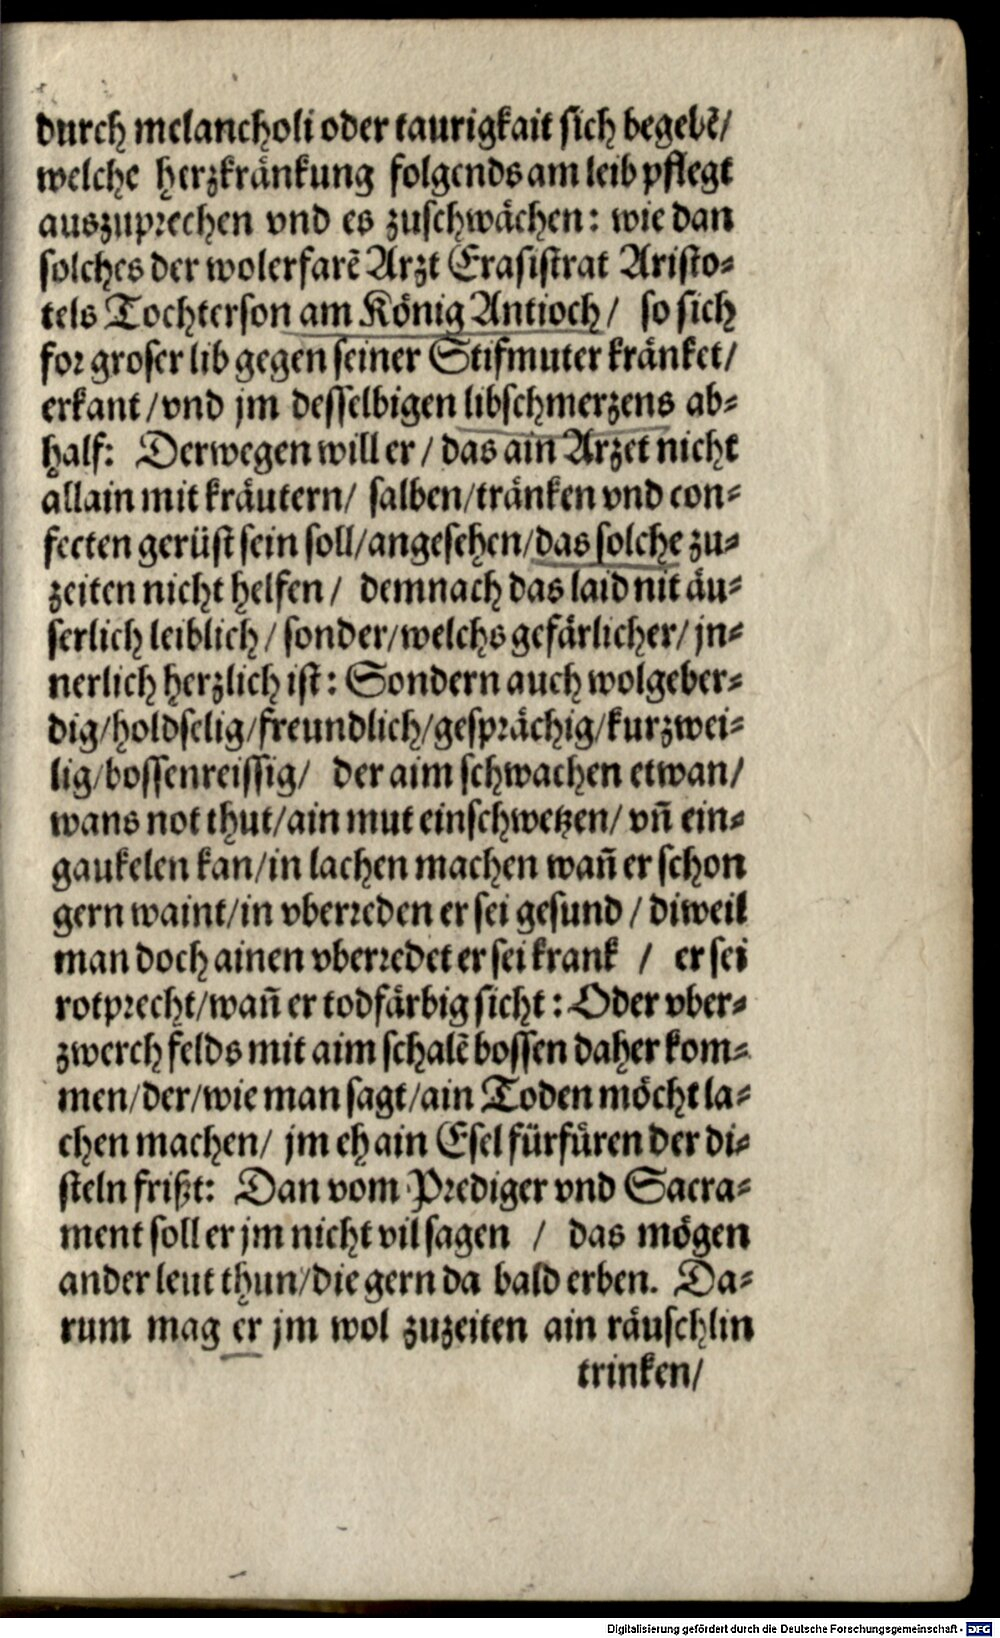 durch melancholi oder taurigkait sich begebẽ/
welche herzkränkung folgends am leib pflegt
auszuprechen vnd es zuschwächen: wie dan
solches der wolerfarẽ Arzt Erasistrat Aristo-
tels Tochterson am König Antioch/ so sich
for groser lib gegen seiner Stifmuter kränket/
erkant/vnd jm desselbigen libschmerzens ab-
half: Derwegen will er/das ain Arzet nicht
allain mit kräutern/ salben/tränken vnd con-
fecten gerüst sein soll/angesehen/das solche zu-
zeiten nicht helfen/ demnach das laid nit äu-
serlich leiblich/sonder/welchs gefärlicher/jn-
nerlich herzlich ist: Sondern auch wolgeber-
dig/holdselig/freundlich/gesprächig/kurzwei-
lig/bossenreissig/ der aim schwachen etwan/
wans not thut/ain mut einschwetzen/vñ ein-
gaukelen kan/in lachen machen wañ er schon
gern waint/in vberreden er sei gesund/diweil
man doch ainen vberredet er sei krank / er sei
rotprecht/wañ er todfärbig sicht: Oder vber-
zwerch felds mit aim schalẽ bossen daher kom-
men/der/wie man sagt/ain Toden möcht la-
chen machen/ jm eh ain Esel fürfüren der di-
steln frißt: Dan vom Prediger vnd Sacra-
ment soll er jm nicht vil sagen / das mögen
ander leut thun/die gern da bald erben. Da-
rum mag er jm wol zuzeiten ain räuschlin
trinken/
Digitalisierung gefördert durch die Deutsche Forschungsgemeinschaft - DFG